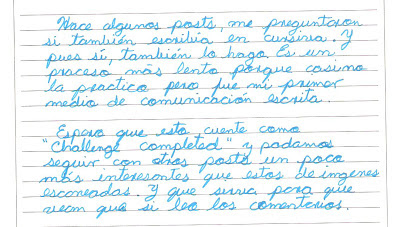 Hace algunos posts, me preguntaron
si también escribía en cursiva. Y
pues sí, también lo hago. Es un
proceso más lento porque casi no
la practico pero fue mi primer
medio de comunicación escrita.
Espero que esto cuente como
"Challenge completed" y podamos
seguir con otros posts un poco
más interesantes que estos de imgenes
escaneadas. Y que sirva para que
vean que si leo los comentarios.